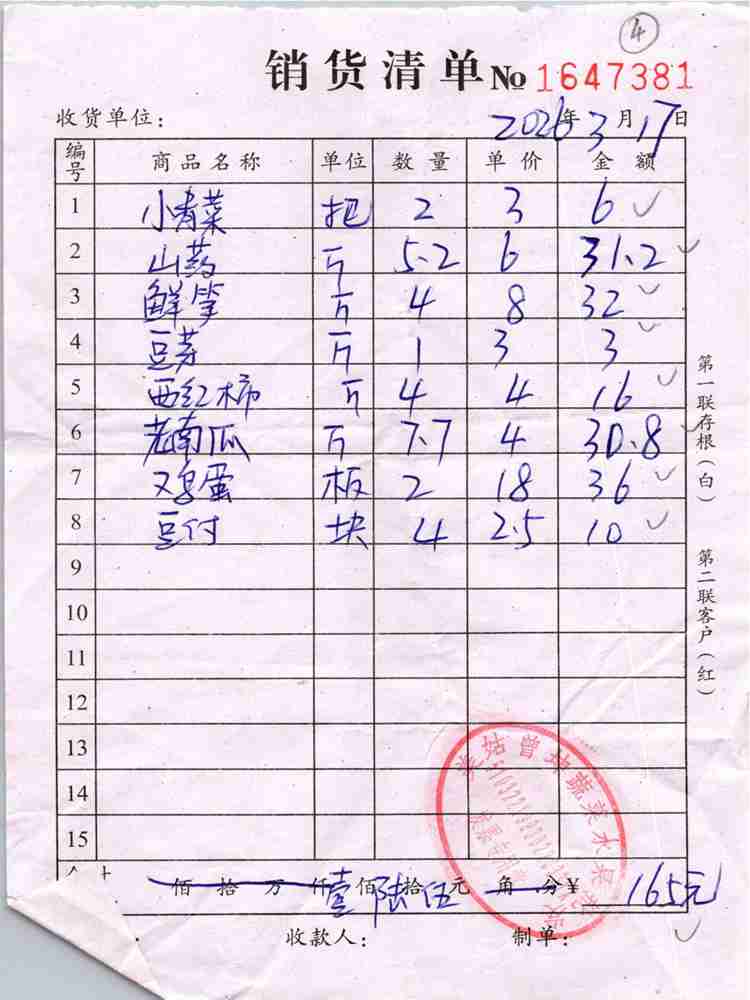 4
销货清单 № 1647381
收货单位: 2026年3月17日
编号 商品名称 单位 数量 单价 金额
1 小青菜 把 2 3 6 ✓
2 山药 斤 5.2 6 31.2 ✓
3 鲜笋 斤 4 8 32 ✓
4 豆芽 斤 1 3 3 ✓
5 西红柿 斤 4 4 16 ✓
6 老南瓜 斤 7.7 4 30.8 ✓
7 鸡蛋 板 2 18 36 ✓
8 豆付 块 4 2.5 10 ✓
9
10
11
12
13
14
15
佰拾万仟壹佰陆拾伍元角分¥ 165元
收款人: 制单: ✓
第一联存根(白)
第二联客户(红)
蔬菜水果